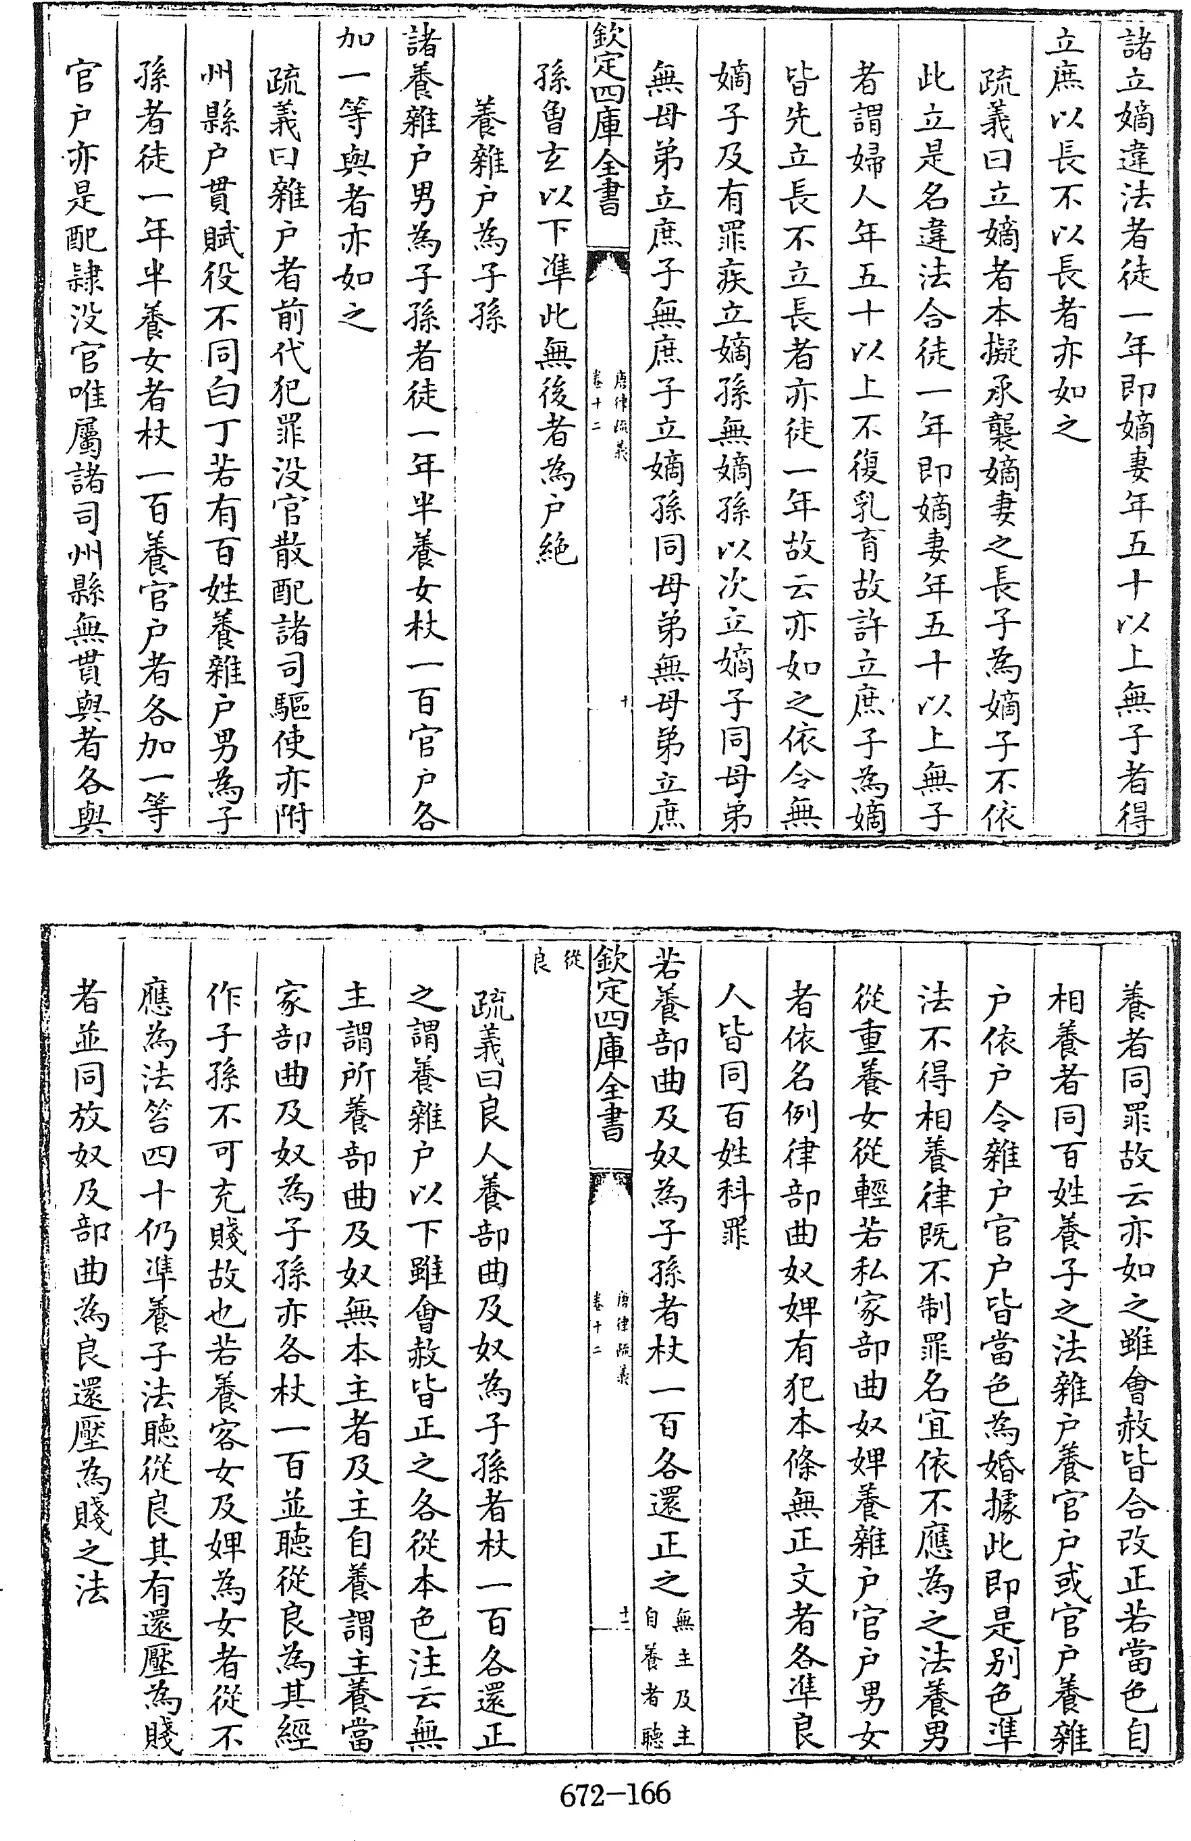 諸立嫡違法者徒一年即嫡妻年五十以上無子者得
立庶以長不以長者亦如之
疏義曰立嫡者本擬承襲嫡妻之長子為嫡子不依
此立是名違法合徒一年即嫡妻年五十以上無子
者謂婦人年五十以上不復乳育故許立庶子為嫡
皆先立長不立長者亦徒一年故云亦如之依令無
嫡子及有罪疾立嫡孫無嫡孫以次立嫡子同母弟
無母弟立庶子無庶子立嫡孫同母弟無母弟立庶
欽定四庫全書
唐律疏義
卷十二
十
孫曾玄以下準此無後者為户絶
養雜户為子孫
諸養雜户男為子孫者徒一年半養女杖一百官户各
加一等與者亦如之
疏義曰雜户者前代犯罪没官散配諸司驅使亦附
州縣户貫賦役不同白丁若有百姓養雜户男為子
孫者徒一年半養女者杖一百養官户者各加一等
官户亦是配隸没官唯屬諸司州縣無貫與者各與
養者同罪故云亦如之雖會赦皆合改正若當色自
相養者同百姓養子之法雜户養官户或官户養雜
户依户令雜户官户皆當色為婚據此即是别色準
法不得相養律既不制罪名宜依不應為之法養男
從重養女從輕若私家部曲奴婢養雜户官户男女
者依名例律部曲奴婢有犯本條無正文者各準良
人皆同百姓科罪
若養部曲及奴為子孫者杖一百各還正之
無主及主
自養者聽
欽定四庫全書
唐律疏義
卷十二
十一
從
良
疏義曰良人養部曲及奴為子孫者杖一百各還正
之謂養雜户以下雖會赦皆正之各從本色注云無
主謂所養部曲及奴無本主者及主自養謂主養當
家部曲及奴為子孫亦各杖一百並聽從良為其經
作子孫不可充賤故也若養客女及婢為女者從不
應為法笞四十仍準養子法聽從良其有還壓為賤
者並同放奴及部曲為良還壓為賤之法
672-166